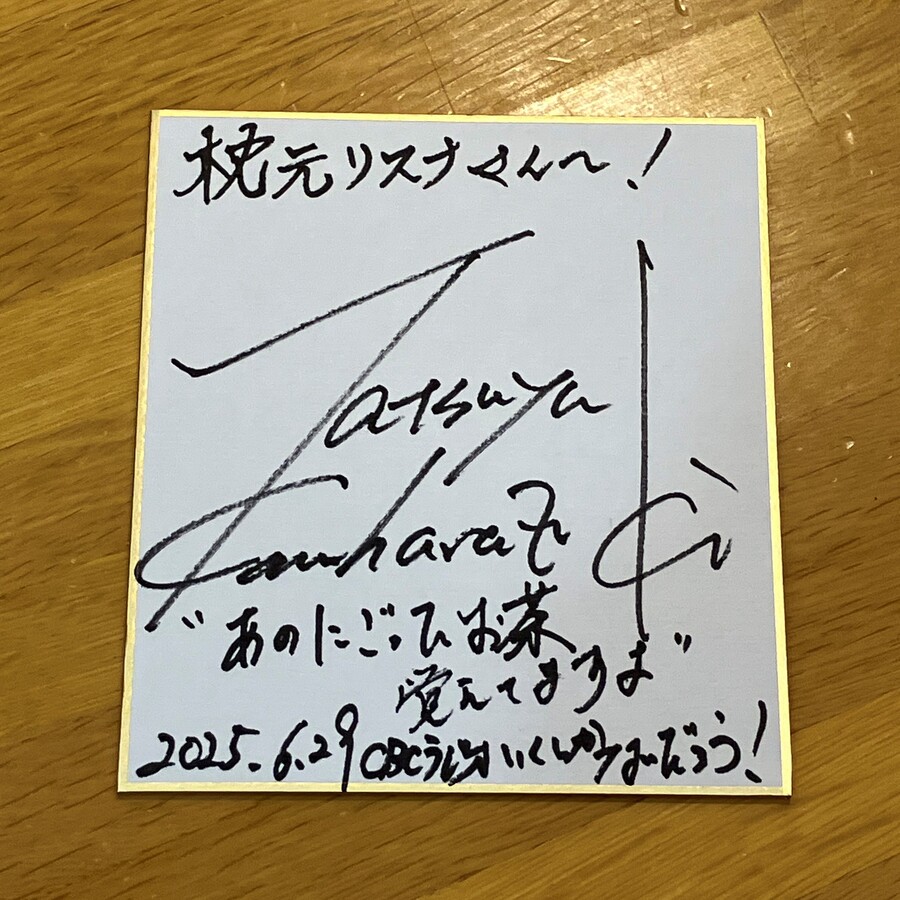 枕元リスナさんへ!
Tatsuya
"あのにごってひお茶
覚えてますよ"
2025.6.29 CBCラジオ いくしかないだろう!